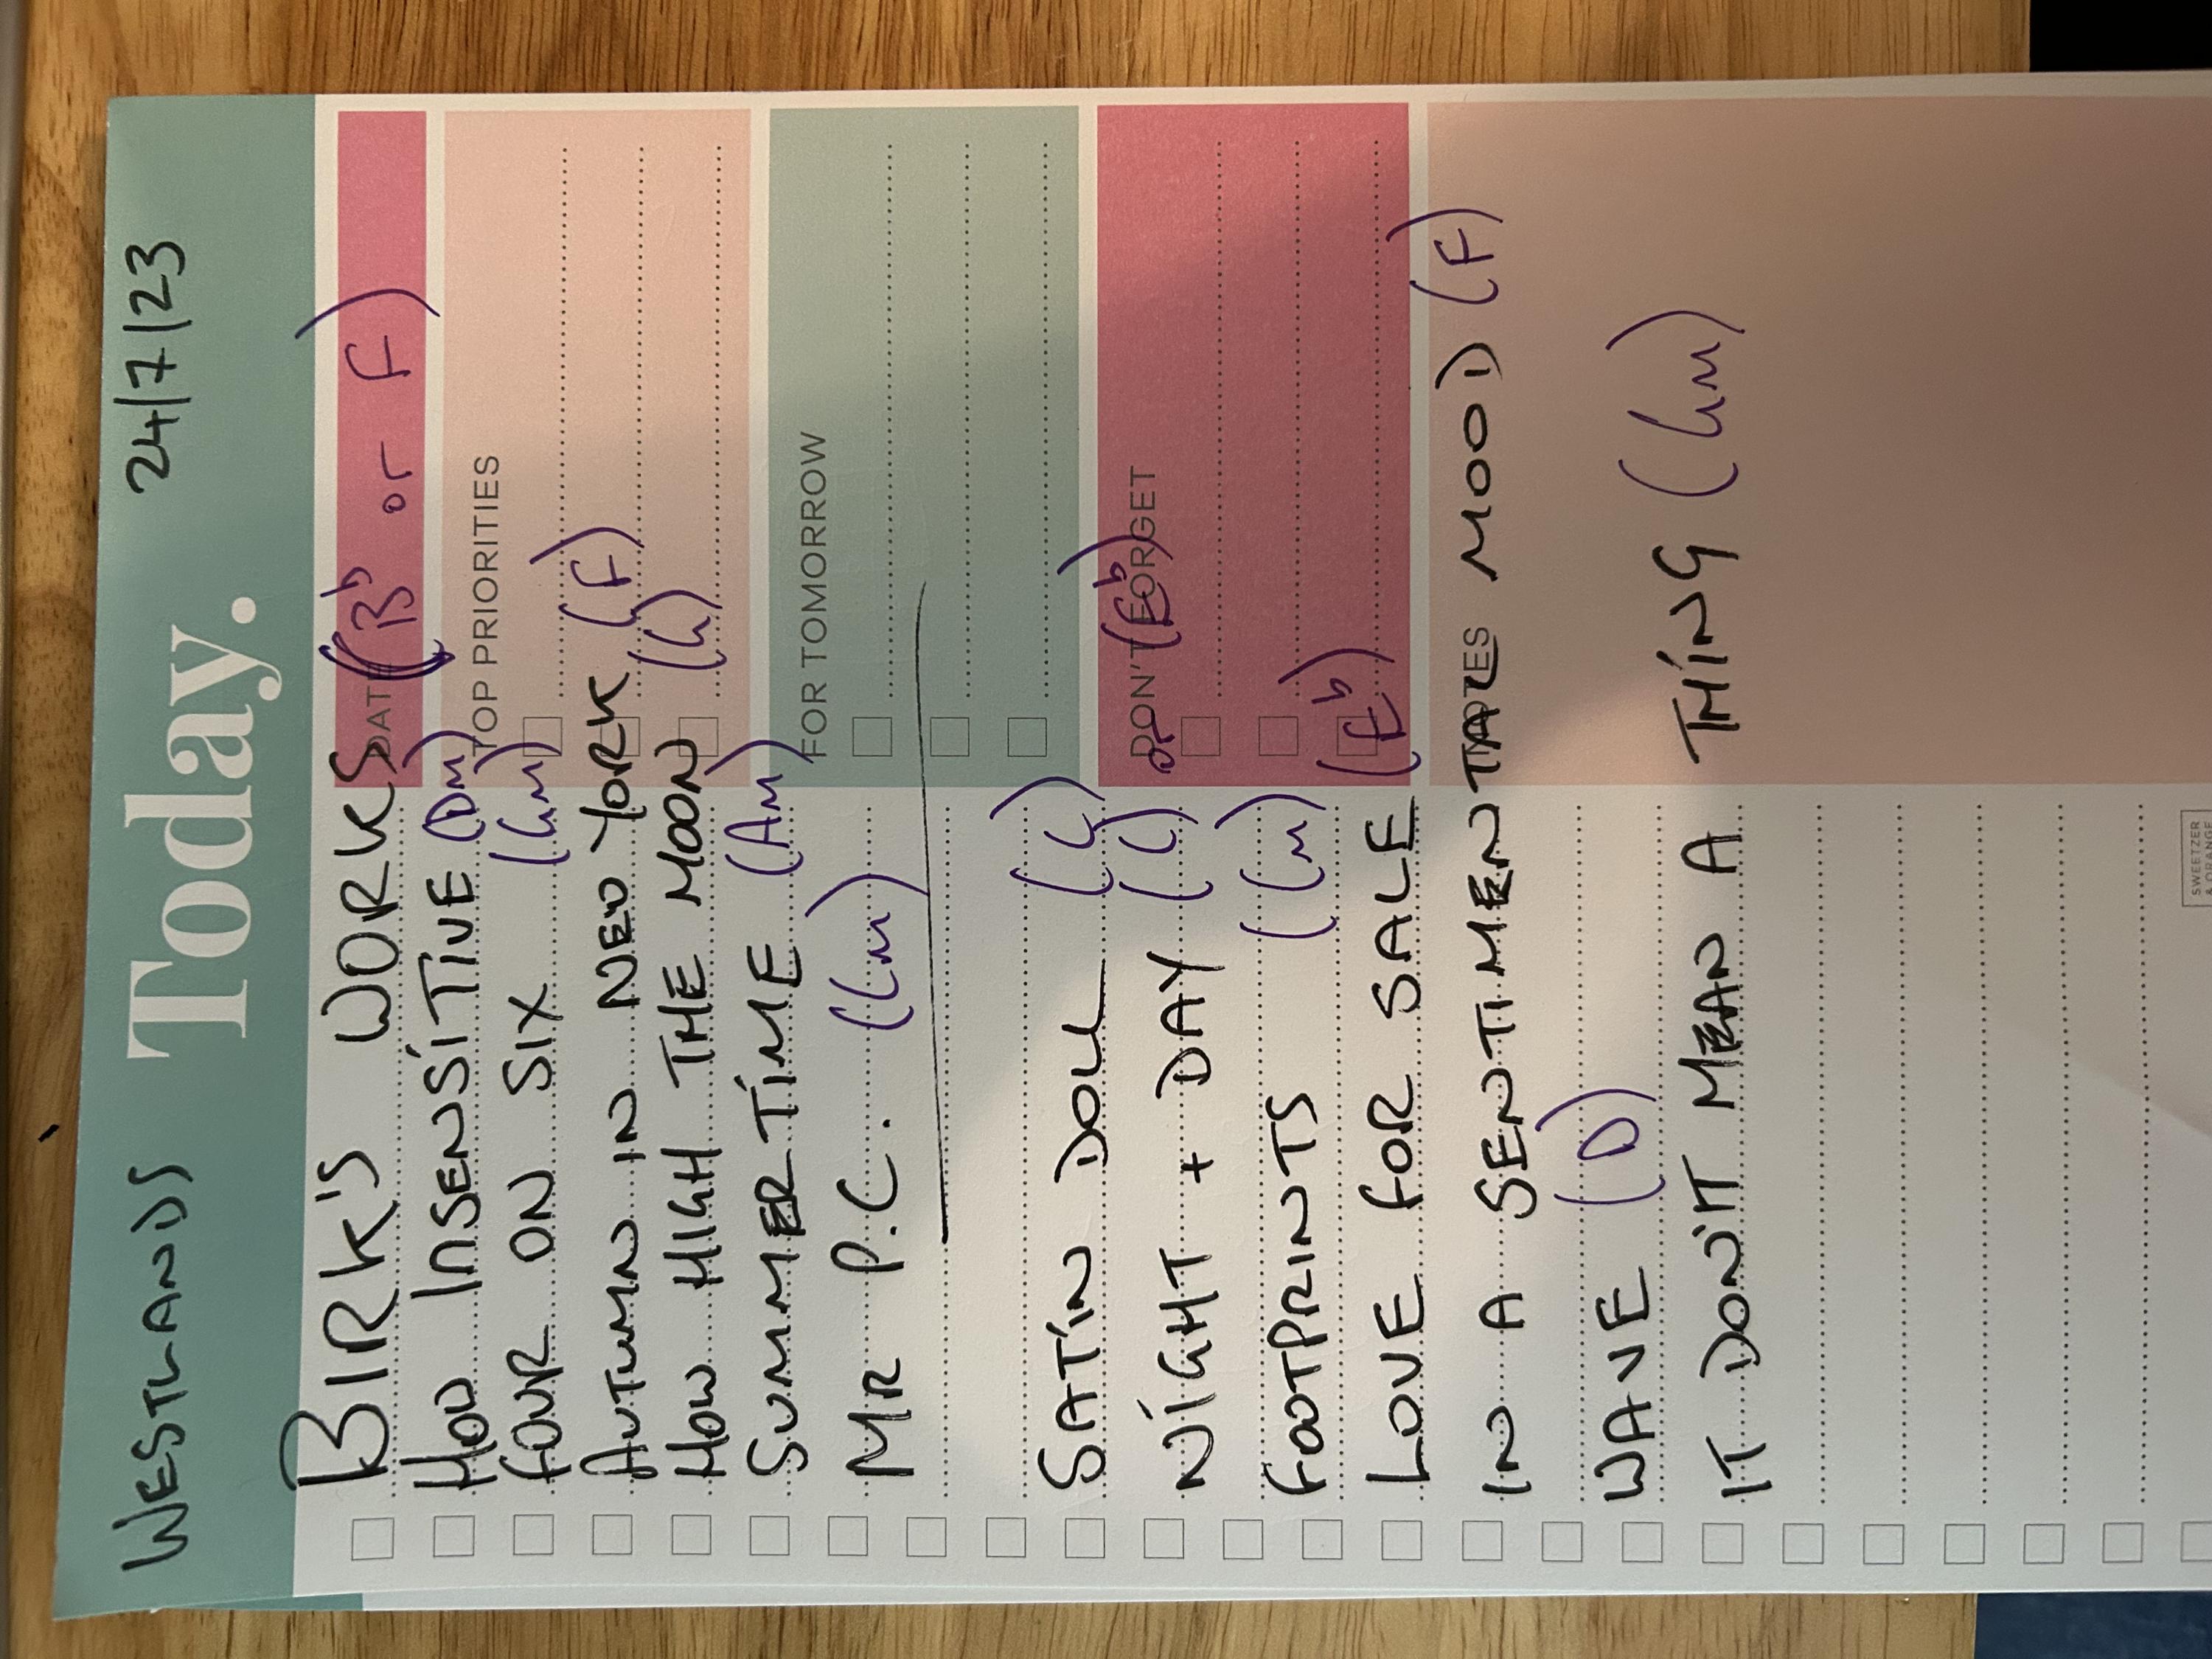 WESTLANDS 24/7/23
Today.
BIRK'S WORKS (Bb or F)
HOW INSENSITIVE (Dm)
FOUR ON SIX (Gm)
AUTUMN IN NEW YORK (F)
HOW HIGH THE MOON (G)
SUMMERTIME (Am)
MR P.C. (Cm)
SATIN DOLL (C)
NIGHT + DAY (C) or (Eb)
FOOTPRINTS (Cm)
LOVE FOR SALE (Eb)
IN A SENTIMENTAL MOOD (F)
WAVE (D)
IT DON'T MEAN A THING (Gm)
DATE
TOP PRIORITIES
FOR TOMORROW
DON'T FORGET
NOTES
SWEETZER
& ORANGE